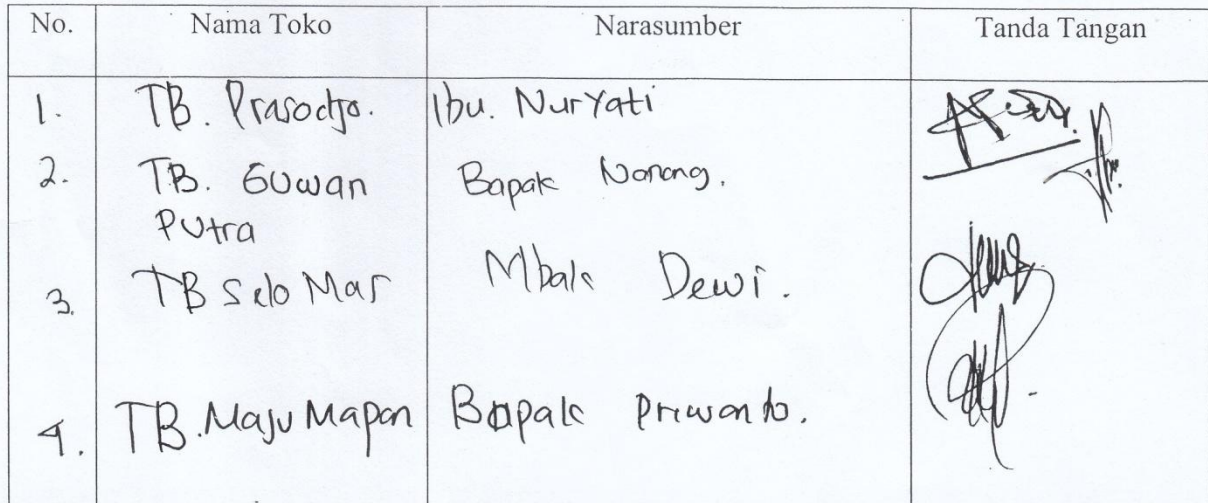 No. Nama Toko Narasumber Tanda Tangan
1. TB. Prasodjo. Ibu. Nuryati
2. TB. Guwan Bapak Nanang.
Putra
3. TB Selo Mas Mbak Dewi.
4. TB. Maju Mapan Bapak Priwanto.